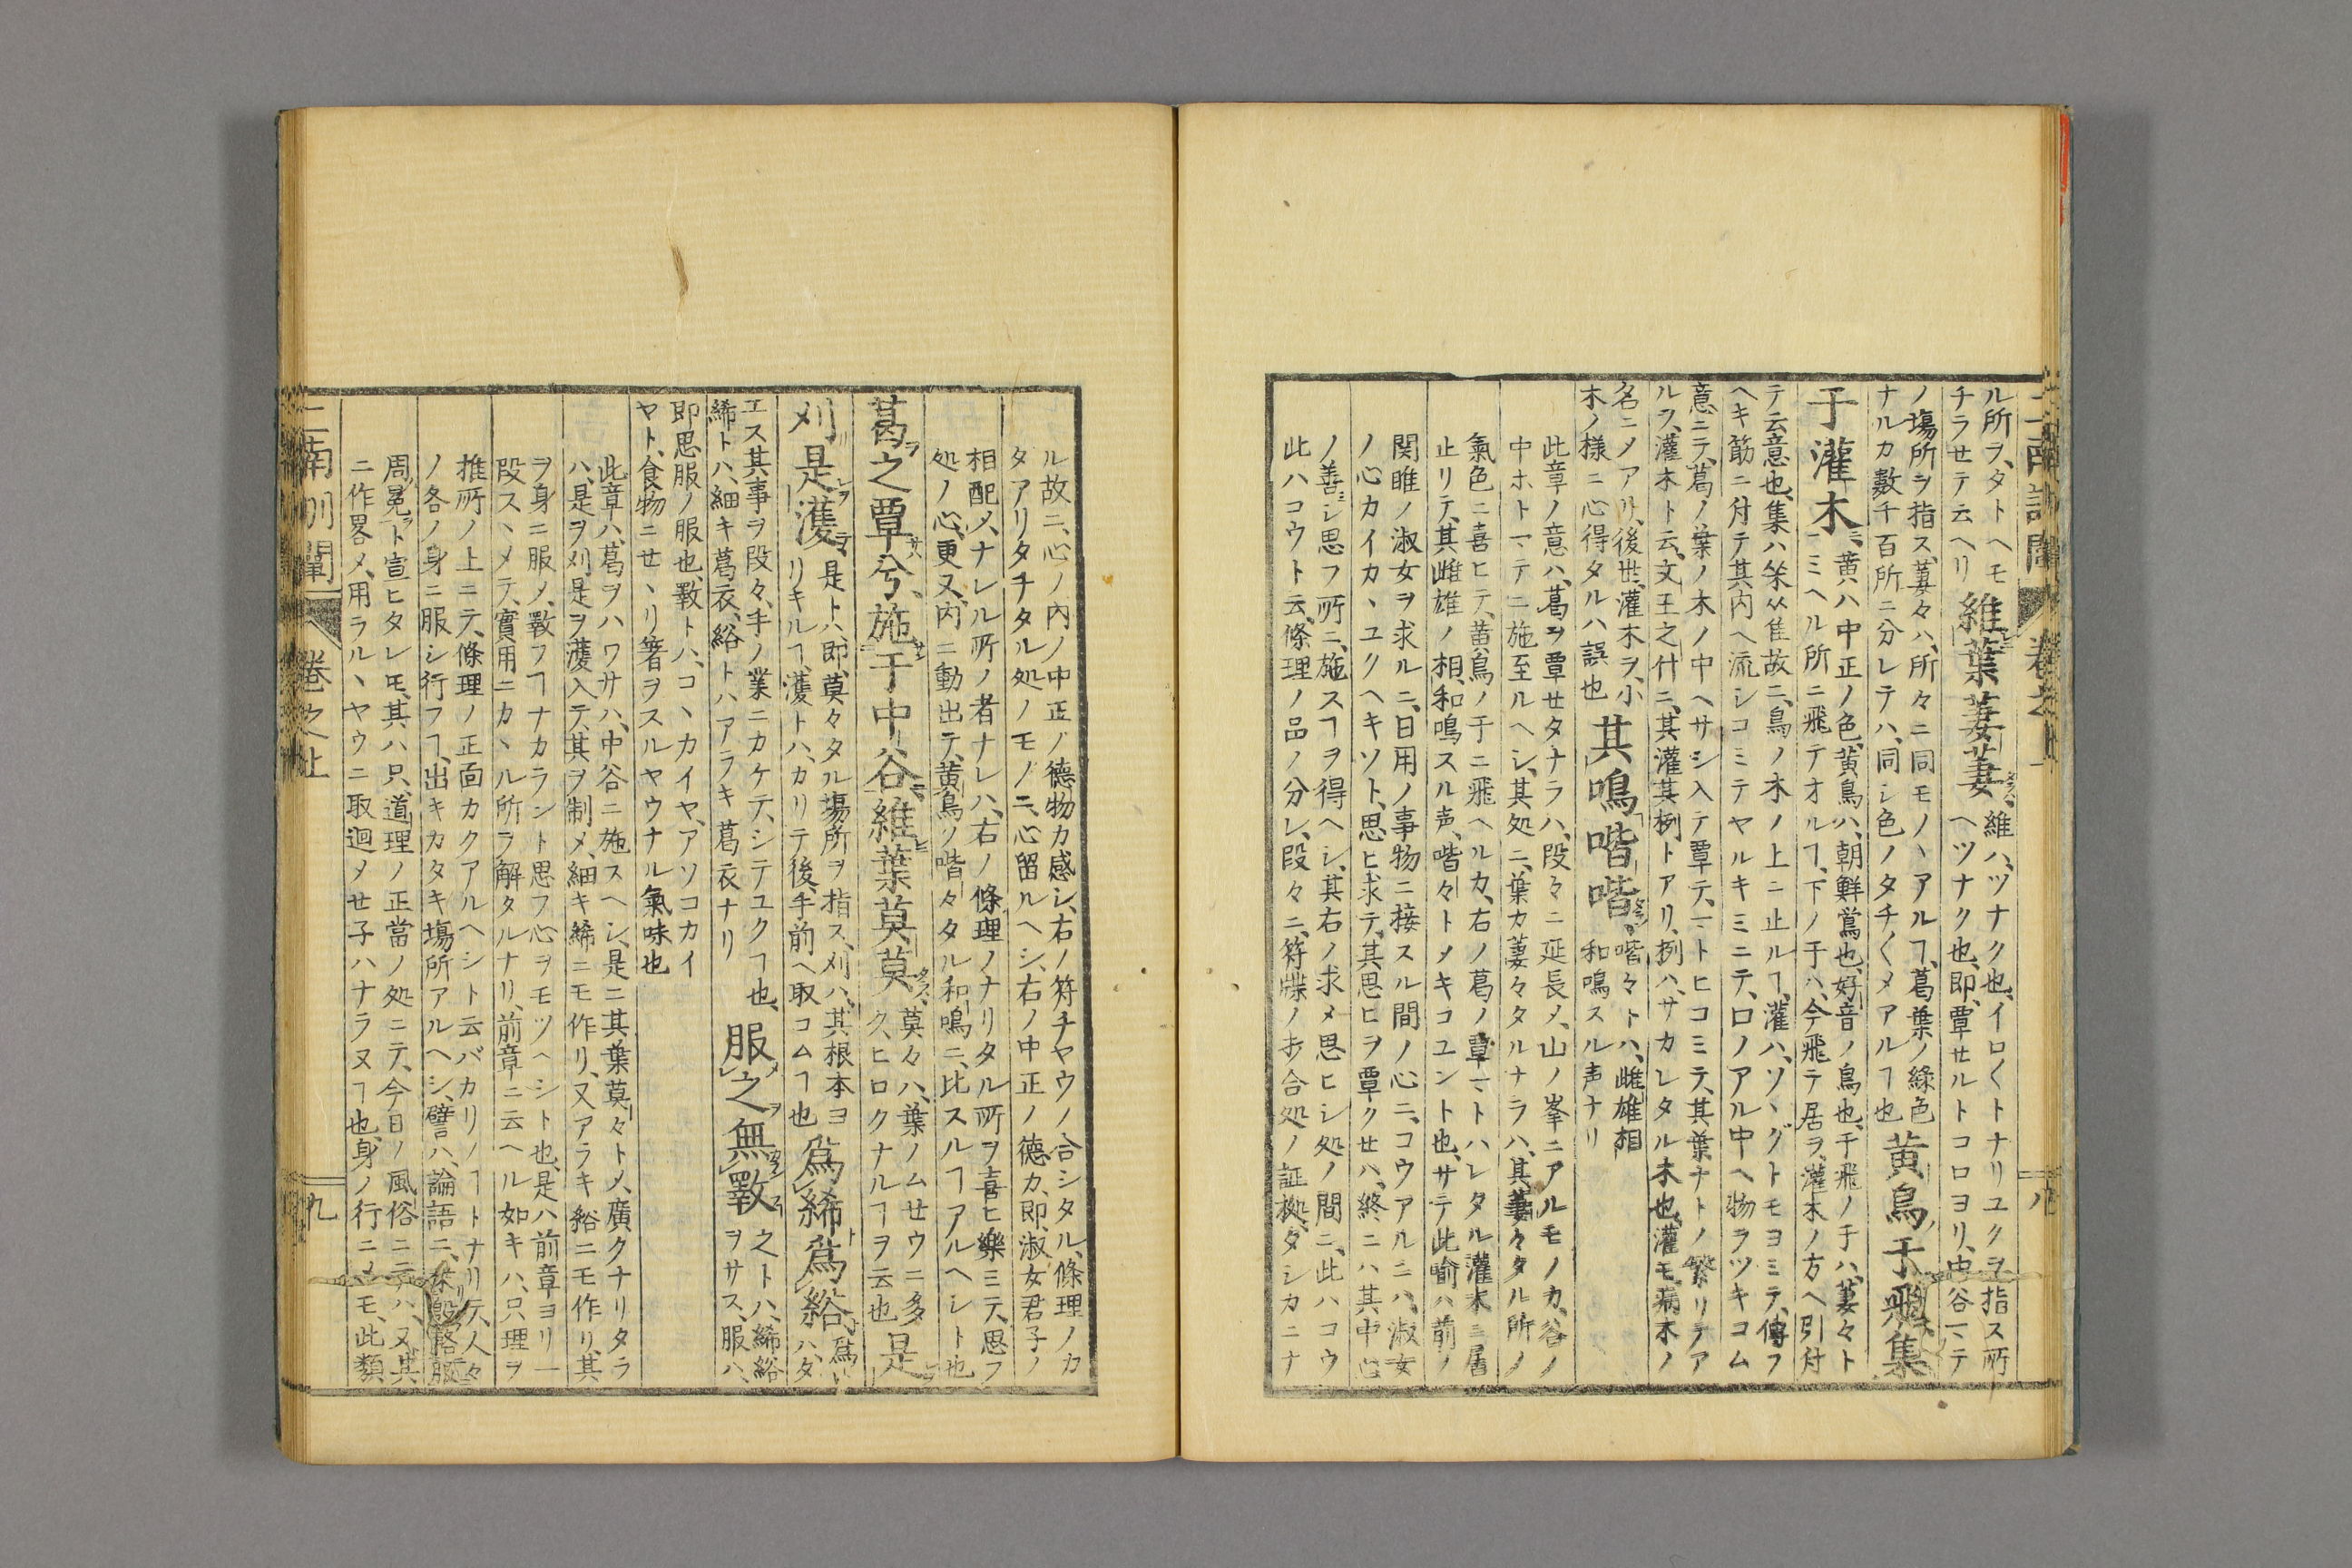 ル所ヲ、タトヘモ、維ハ、ツナク也、イロ〱トナリユクヲ指ス所
チラセテ云ヘリ 維葉萋萋 ヘツナク也、即、覃セルトコロヨリ、中谷一ニテ
ノ塲所ヲ指ス、萋々ハ、所々ニ同モノヽアルヿ、葛葉ノ綠色
ナルカ數千百所ニ分レテハ、同シ色ノタチ〱メアルヿ也 黄鳥于飛集
于灌木 黄ハ中正ノ色、黄鳥ハ、朝鮮鶯也、好音ノ鳥也、于飛ノ于ハ、萋々ト
ミヘル所ニ飛テオルヿ、下ノ于ハ、今飛テ居ヲ、灌木ノ方ヘ引付
テ云意也、集ハ𠆢从隹故ニ、鳥ノ木ノ上ニ止ルヿ、灌ハ、ソヽグトモヨミテ、傳フ
ヘキ筋ニ付テ其内ヘ流シコミテヤルキミニテ、口ノアル中ヘ物ヲツキコム
意ニテ、葛ノ葉ノ木ノ中ヘサシ入テ覃テ、一トヒコミテ、其葉ナトノ繁リテア
ルヲ、灌木ト云、文王之什ニ、其灌其栵、トアリ、栵ハ、サカレタル木也、灌モ、病木ノ
名ニノアリ、後世、灌木ヲ、小
木ノ様ニ心得タルハ誤也 其鳴喈喈 喈々トハ、雌雄相
和鳴スル声ナリ
此章ノ意ハ、葛ヲ覃セタナラハ、段々ニ延長メ、山ノ峯ニアルモノカ、谷ノ
中ホトマテニ施至ルヘシ、其処ニ、葉カ萋々タルナラハ、其萋々タル所ノ
氣色ニ喜ヒテ、黄鳥ノ于ニ飛ヘルカ、右ノ葛ノ覃マトハレタル灌木ニ居
止リテ、其雌雄ノ相、和鳴スル声、喈々トメキコユント也、サテ此喩ハ前ノ
関雎ノ淑女ヲ求ルニ、日用ノ事物ニ接スル間ノ心ニ、コウアルニハ、淑女
ノ心カイカヽユクヘキソト、思ヒ求テ、其思ヒヲ覃クセハ、終ニハ其中心
ノ善ニシ思フ所ニ、施スヿヲ得ヘシ、其右ノ求メ思ヒシ処ノ間ニ、此ハコウ
此ハコウト云、條理ノ品ノ分レ、段々ニ、符牒ノホ合処ノ証拠、タシカニナ
ル故ニ、心ノ内ノ中正ノ德物カ感シ、右ノ符チヤウノ合シタル、條理ノカ
タアリタチタル処ノモノニ、心留ルヘシ、右ノ中正ノ德カ、即、淑女君子ノ
相配メ、ナレル所ノ者ナレハ、右ノ條理ノナリタル所ヲ喜ヒ樂ミテ、思フ
処ノ心、更又、内ニ動出テ、黄鳥ノ喈々タル和鳴ニ、比スルヿアルヘシト也
葛之覃兮、施于中谷、維葉莫莫 莫々ハ、葉ノムセウニ多
ク、ヒロクナルヿヲ云也 是
刈是濩 是トハ、即、莫々タル塲所ヲ指ス、刈ハ、其根本ヨ
リキルヿ、濩トハ、カリテ後、手前ヘ取コムヿ也 爲絺爲綌 爲ハ、タ
エス其事ヲ段々、手ノ業ニカケテ、シテユクヿ也、
絺トハ、細キ葛衣、綌トハアラキ葛衣ナリ 服之無斁 之トハ、絺綌
ヲサス、服ハ、
即思服ノ服也、斁トハ、コヽカイヤ、アソコカイ
ヤト、食物ニセヽリ箸ヲスルヤウナル氣味也
此章ハ、葛ヲハワサハ、中谷ニ施スヘシ、是ニ其葉莫々トメ、廣クナリタラ
ハ、是ヲ刈是ヲ濩入テ、其ヲ制メ、細キ絺ニモ作リ、又アラキ綌ニモ作リ、其
ヲ身ニ服メ、斁フヿナカラント思フ心ヲモツヘシト也、是ハ前章ヨリ一
段スヽメテ、實用ニカヽル所ヲ解タルナリ、前章ニ云ヘル如キハ、只理ヲ
推所ノ上ニテ、條理ノ正面カクアルヘシト云バカリノヿトナリ𪜈、人々
ノ各ノ身ニ服シ行フヿ、出キカタキ塲所アルヘシ、譬ハ、論語ニ、乘殷輅服
周冕、ト宣ヒタレ𪜈、其ハ只、道理ノ正當ノ処ニテ、今日ノ風俗ニテハ、又其
ニ作畧メ、用ラルヽヤウニ取廻メセ子ハナラヌヿ也、身ノ行ニメモ、此類
二南訓闡 卷之上 八
二南訓闡 卷之上 九